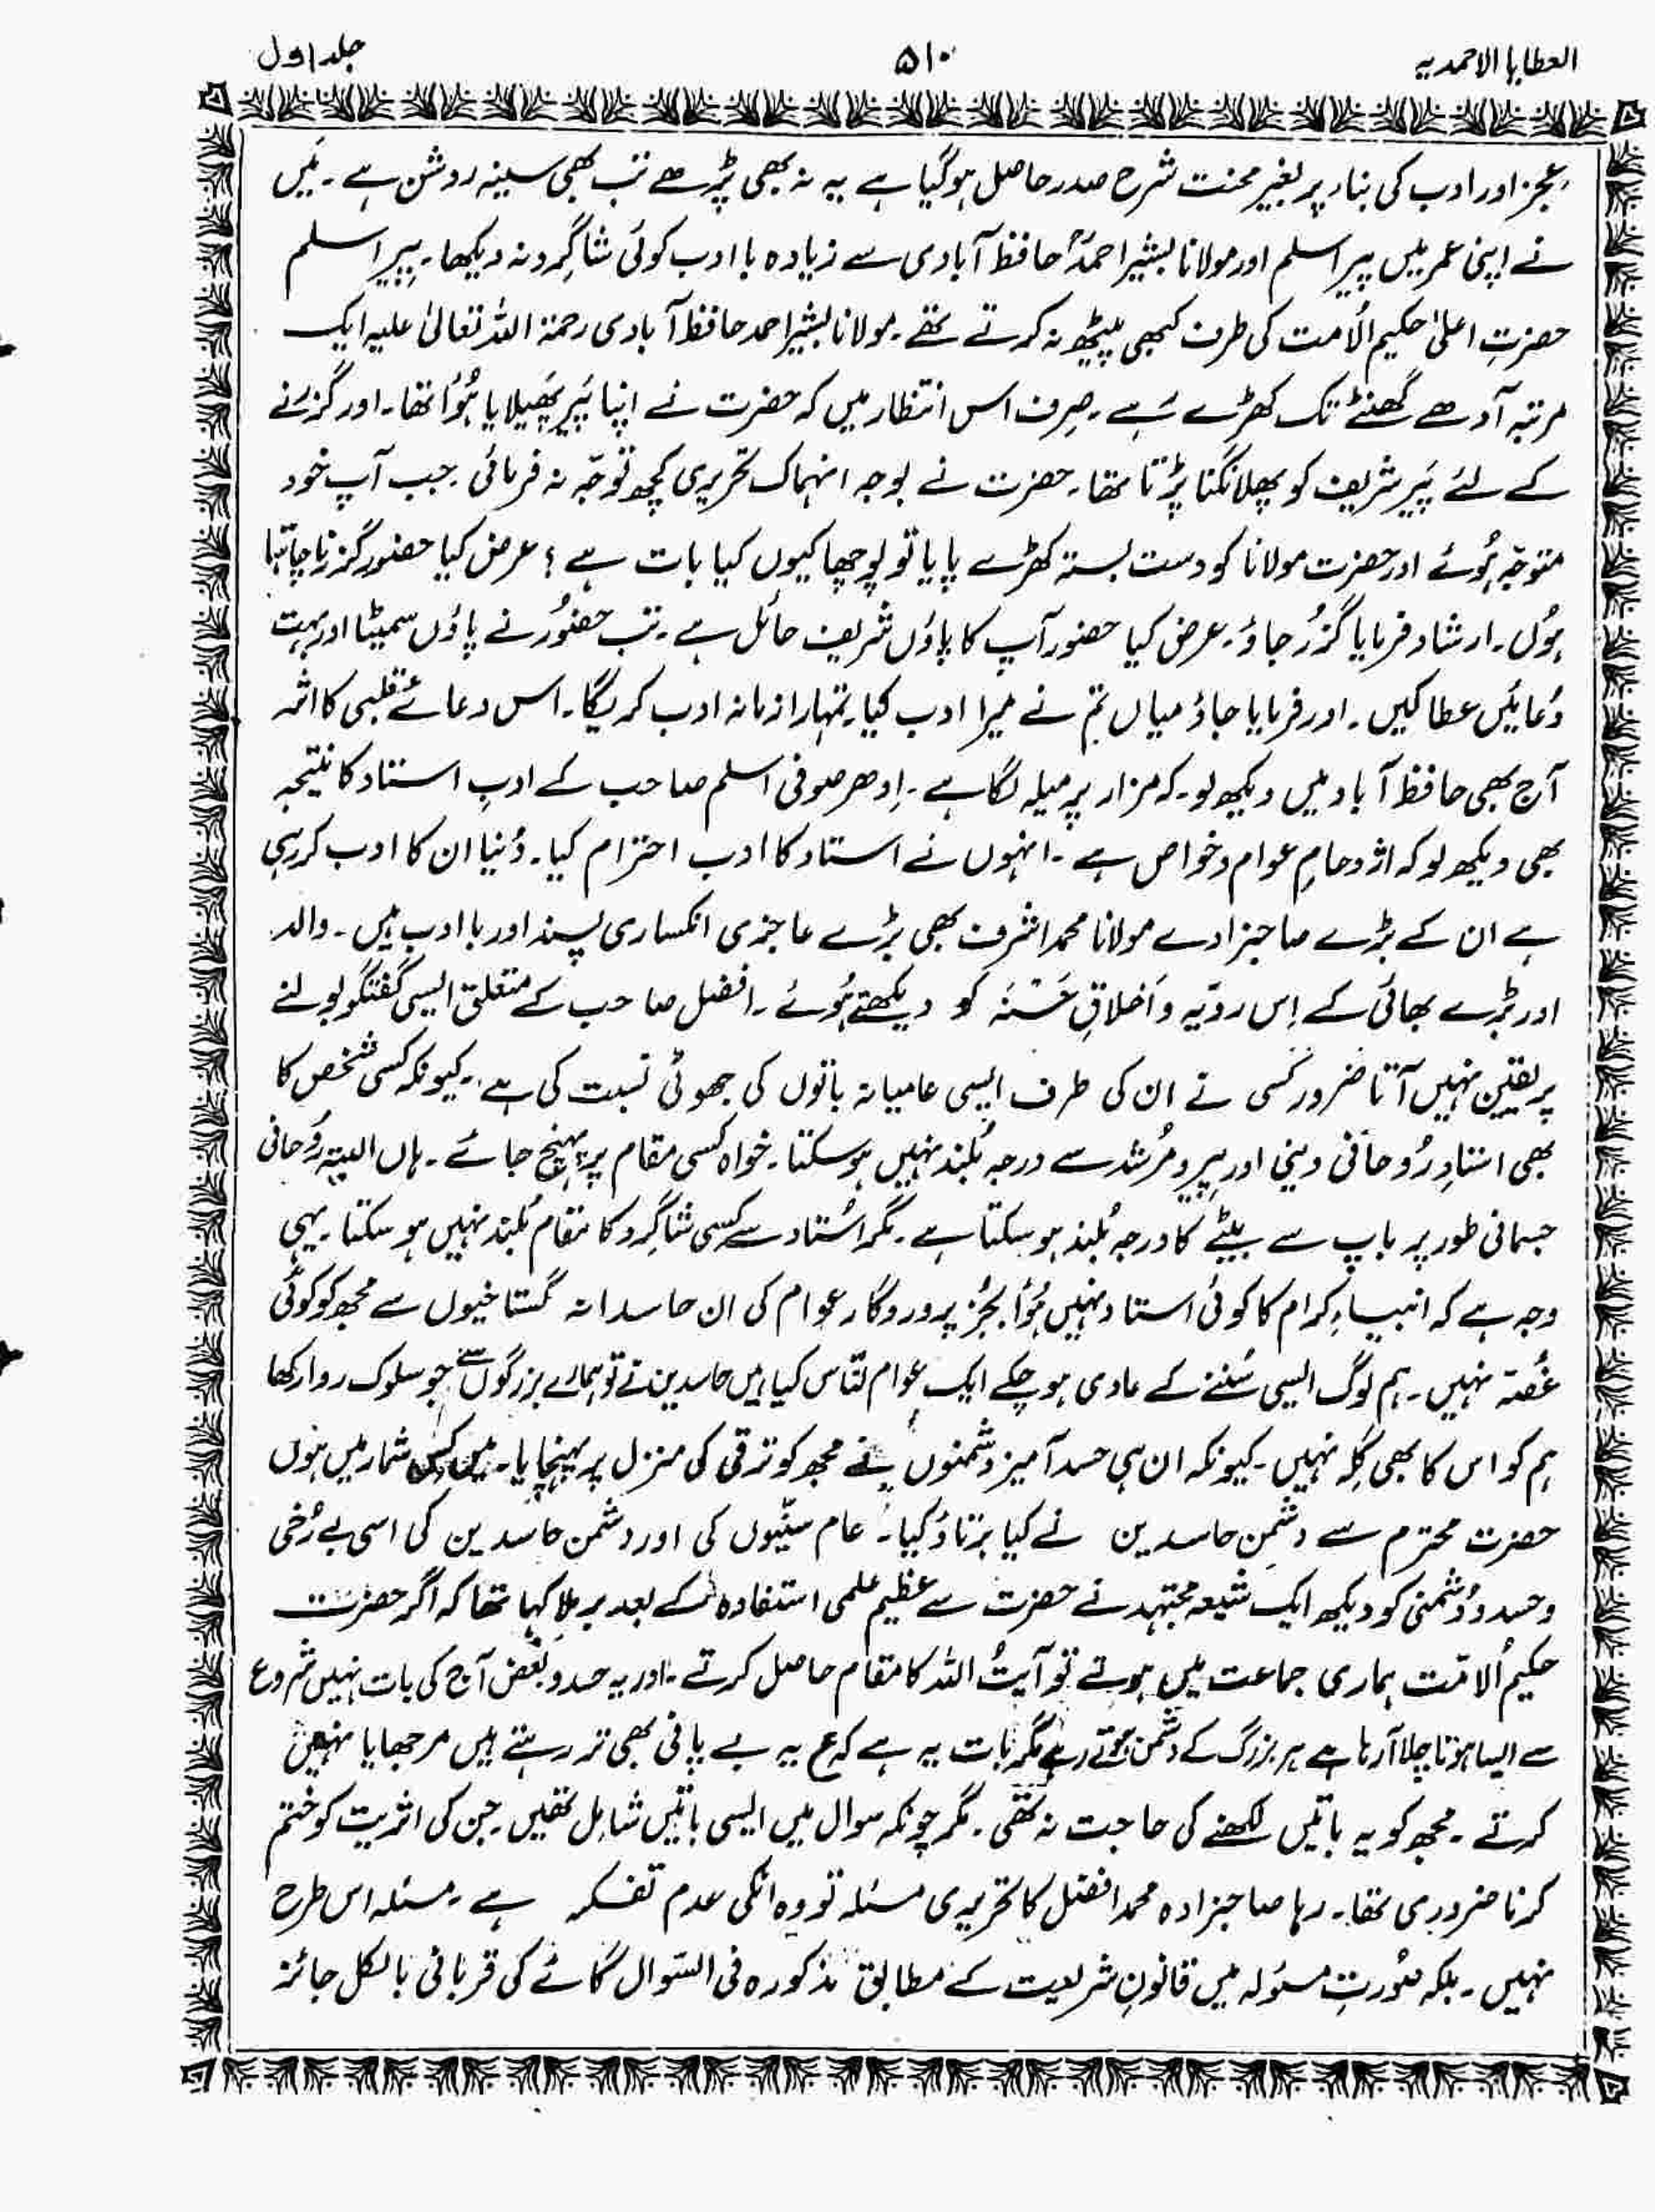 العطایا الاحمدیہ ۵۱۰ جلد اول
عجز اور ادب کی بنا پر بغیر محنت شرح صدر حاصل ہو گیا ہے یہ نہ بھی پڑھے تب بھی سینہ روشن ہے ۔ مَیں
نے اپنی عمر میں پیر اسلم اور مولانا بشیر احمدؒ حافظ آبادی سے زیادہ با ادب کوئی شاگِرد نہ دیکھا ۔ پیر اسلم
حضرتِ اعلیٰ حکیم الُامت کی طرف کبھی پیٹھ نہ کرتے تھے ۔ مولانا بشیر احمد حافظ آبادی رحمۃ اللہ تعالیٰ علیہ ایک
مرتبہ آدھے گھنٹے تک کھڑے رَہے ۔ صِرف اس انتظار میں کہ حضرت نے اپنا پَیر پَھیلایا ہُوَا تھا ۔ اور گزرنے
کے لئے پَیر شریف کو پھلانگنا پڑتا تھا ۔ حضرت نے بوجہ انہماک تحریری کچھ توجّہ نہ فرمائی ۔ جب آپ خود
متوجّہ ہُوئے اور حضرت مولانا کو دست بستہ کھڑے پایا تو پوچھا کیوں کیا بات ہے ؟ عرض کیا حضور گزرنا چاہتا
ہوُں ۔ ارشاد فرمایا گزُر جاؤ ۔ عرض کیا حضور آپ کا پاؤں شریف حائل ہے ۔ تب حضوُر نے پاؤں سمیٹا اور بہت
دُعائیں عطا کیں ۔ اور فرمایا جاؤ میاں تم نے میرا ادب کیا ۔ تمہارا زمانہ ادب کریگا ۔ اس دعائے قلبی کا اثر
آج بھی حافظ آباد میں دیکھ لو ۔ کہ مزار پر میلہ لگا ہے ۔ اِدھر صوفی اسلم صاحب کے ادبِ استاد کا نتیجہ
بھی دیکھ لو کہ اژدحامِ عوام و خواص ہے ۔ انہوں نے استاد کا ادب احترام کیا ۔ دُنیا ان کا ادب کر رہی
ہے ان کے بڑے صاحبزادے مولانا محمد اشرف بھی بڑے عاجزی انکساری پسند اور با ادب ہیں ۔ والد
اور بڑے بھائی کے اِس رویّہ و اَخلاقِ حَسَنَہ کو دیکھتے ہُوئے ۔ افضل صاحب کے متعلق ایسی گفتگو بولنے
پر یقین نہیں آتا ضرور کسی نے ان کی طرف ایسی عامیانہ باتوں کی جھوٹی نسبت کی ہے ۔ کیونکہ کسی شخص کا
بھی استادِ رُوحانی دینی اور پیر و مُرشد سے درجہ بُلند نہیں ہو سکتا ۔ خواہ کسی مقام پر پہنچ جائے ۔ ہاں البتہ رُوحانی
جسمانی طور پر باپ سے بیٹے کا درجہ بُلند ہو سکتا ہے ۔ مگر اسُتاد سے کسی شاگِرد کا مقام بُلند نہیں ہو سکتا ۔ یہی
وجہ ہے کہ انبیاءِ کرام کا کوئی استاد نہیں ہُوَا بجُز پروردگار عوام کی ان حاسدانہ گستاخیوں سے مجھ کو کوئی
غُصّہ نہیں ۔ ہم لوگ ایسی سُننے کے عادی ہو چکے ایک عوام لنّاس کیا ہیں حاسدین نے تو ہمارے بزرگوں سے جو سلوک روا رکھا
ہم کو اس کا بھی گِلہ نہیں ۔ کیونکہ ان ہی حسد آمیز دُشمنوں نے مجھ کو ترقی کی منزل پر پہنچایا ۔ میں کس شمار میں ہوں
حضرت محترم سے دشمِن حاسدین نے کیا برتاؤ کیا ۔ عام سنّیوں کی اور دشمن حاسدین کی اسی بے رُخی
و حسد و دُشمنی کو دیکھ ایک شیعہ مجتہد نے حضرت سے عظیم علمی استفادہ کے بعد برملا کہا تھا کہ اگر حضرت
حکیم اُلامّت ہماری جماعت میں ہوتے تو آیتُ اللہ کا مقام حاصل کرتے ۔ اور یہ حسد و بغض آج کی بات نہیں شروع
سے ایسا ہوتا چلا آ رہا ہے ہر بزرگ کے دشمن ہوتے رہے مگر بات یہ ہے کہ ع یہ بے پانی بھی تر رہتے ہیں مرجھایا نہیں
کرتے ۔ مجھ کو یہ باتیں لکھنے کی حاجت نہ تھی ۔ مگر چونکہ سوال میں ایسی باتیں شامِل تھیں جن کی اثریت کو ختم
کرنا ضروری تھا ۔ رہا صاحبزادہ محمد افضل کا تحریری مسئلہ تو وہ انکی عدم تفکر ہے ۔ مسئلہ اس طرح
نہیں ۔ بلکہ صُورتِ مسئولہ میں قانونِ شریعت کے مطابق مذکورہ فی السّوال گائے کی قربانی بالکل جائز